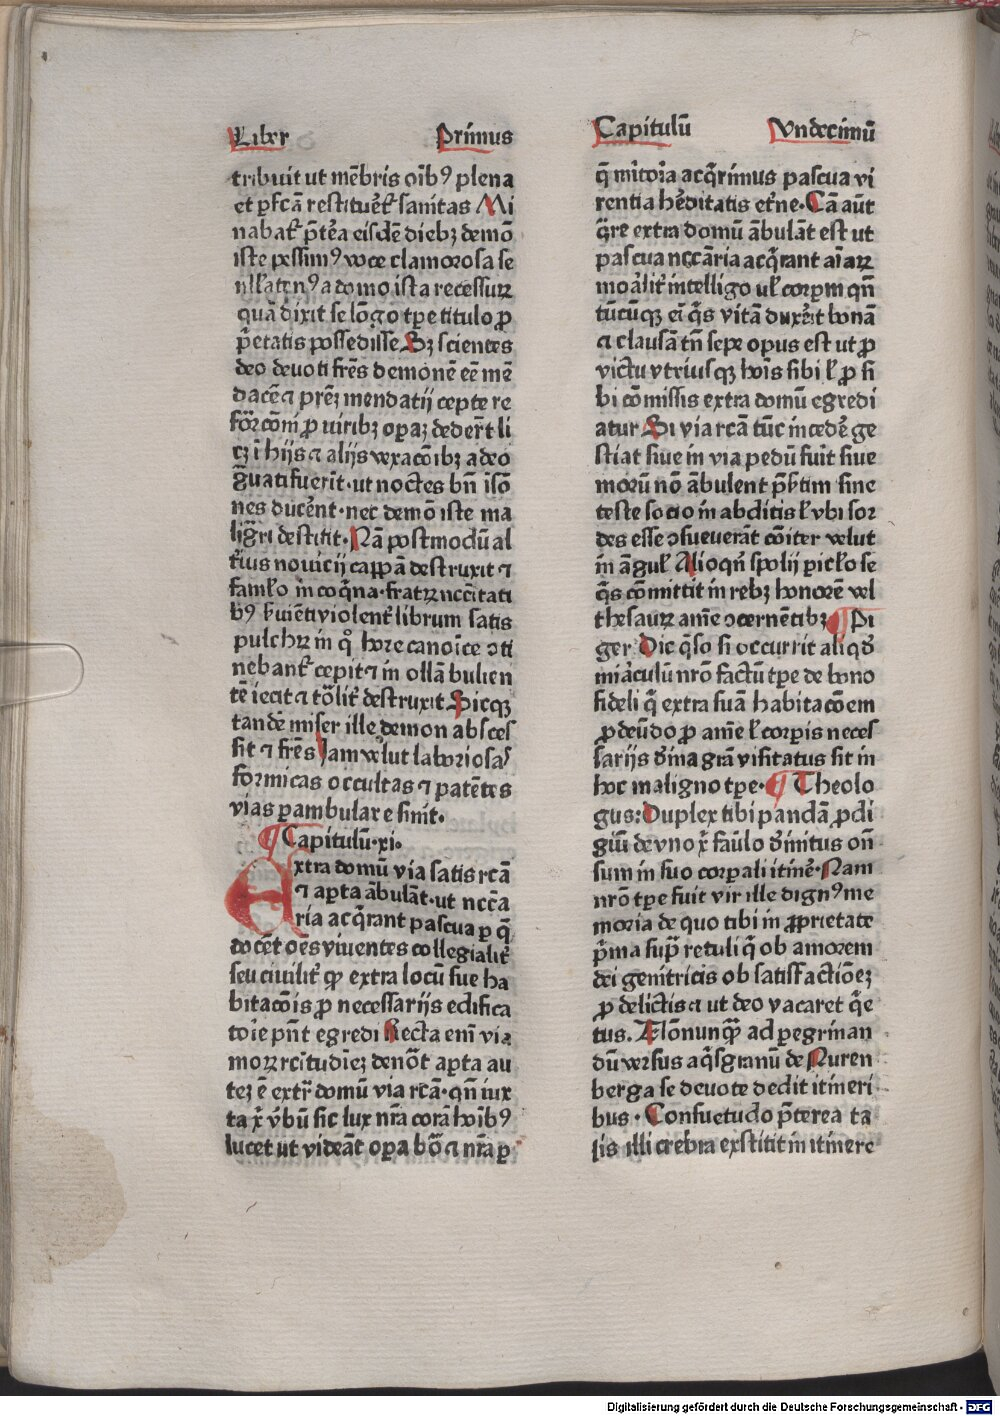 Liber Primus
tribuit ut mēbris oīb⁹ plena
et ꝑfcā restitueret᷑ sanitas Mi
nabat᷑ p̄tēa eisdē dieb; demō
iste pessim⁹ voce clamorosa se
a domo ista recessuꝝ
quā dixit se lōgo tꝑe titulo ꝓ
p̄etatis possedisse Sꝫ scientes
deo devoti fr̄es demonē eē mē
dacē ⁊ pr̄eꝫ mendatij cepte re
for̄cōnī ꝓ viribꝫ oꝑaꝫ deder̄t li
cꝫ ī hijs ⁊ alijs vexacōibꝫ adeo
g̈uati fuerīt·ut noctes bn̄ īsō
nes ducēnt·nec demō iste ma
ligr̄i destitit·Nā postmodū al
teri⁹ novicij cappā destruxit ⁊
famĺo in coq̄na·fratꝝ nccītati
b⁹ violent᷑ librum satis
pulchꝝ in q̊ hore canoīce ɔti
nebant᷑ cepit ⁊ in ollā bulien
tē iecit ⁊ tōlit᷑ destruxit Sicqꝫ
tandē miser ille demon absces
sit ⁊ fr̄es Jam velut laboriosaſ
formicas occultas ⁊ patētes
vias ꝑambulare sinit.
¶ Capitulū·xi.
Extra domū via satis rcā
⁊ aꝑta ābulāt·ut nccā
ria acq̄rant pascua ꝑ q̄
docēt oēs viventes collegialit᷑
seu civilit᷑ ꝙ extra locū sue ha
bitacōis ꝓ necessarijs edifica
toīe pn̄t egredi Recta enī via
moꝝ rcītudieꝫ denōt aꝑta au
teꝫ ē extr̄ domū via rcā·qn̄ iux
ta xr̄ v̄bū sic lux nr̄a corā hoīb⁹
lucet ut videāt oꝑa bōa ⁊ nr̄a ꝑ
Capitulū Vndecimū
q̄ mitoīa acq̄rimus pascua vi
rentia hēditatis et᷑ne·Cā aūt
q̈re extra domū ābulāt est ut
pascua nccāria acq̄rant aīaꝝ
mo intelligo ul᷑ corꝑm qn̄
tūcūqꝫ eī q̄s vitā duxērit bonā
⁊ clausā tn̄ sepe opus est ut ꝓ
victu vtriusqꝫ hoīs sibi ĺ ꝓ si
bi cōmissis extra domū egredi
atur Si via rcā tūc incedē ge
stiat sive in via pedū fuīt sive
morū nō ābulent p̄sertim sine
teste socio in abditis ĺ vbi sor
des esse ɔsueverāt cōiter velut
in āguĺ Alioqn̄ spolij ꝑicĺo se
q̄s cōmittit in rebꝫ honorē vel
thesauꝝ anīe ɔcernētibꝫ ¶ Pi
ger Dic q̄so si occurrit aliqd̄
miāculū nr̄o factū tꝑe de bono
fideli q̄ extra suā habitacōem
ꝓdeūdo ꝓ anīe ĺ corꝑis neces
sarijs dīna grā visitatus sit in
hoc maligno tꝑe. ¶ Theolo
gus: Duplex tibi pandā ꝓdi
giū de vno xr̄ faūlo dīnitus on̄
sum in suo corꝑali itinēe·Nam
nr̄o tꝑe fuit vir ille dign⁹ me
moria de quo tibi in ꝓprietate
p̄ma sup̄ retuli q̄ ob amorem
dei genitricis ob satisfactiōeꝫ
ꝓ delictis ⁊ ut deo vacaret q̄e
tus. Alōnunq̄ ad ꝑegrinan
dū versus aq̄sgranū de Nuren
berga se devote dedit itineri
bus· Consuetudo p̄terea ta
lis illi crebra exstitit in itinere
Digitalisierung gefördert durch die Deutsche Forschungsgemeinschaft - DFG